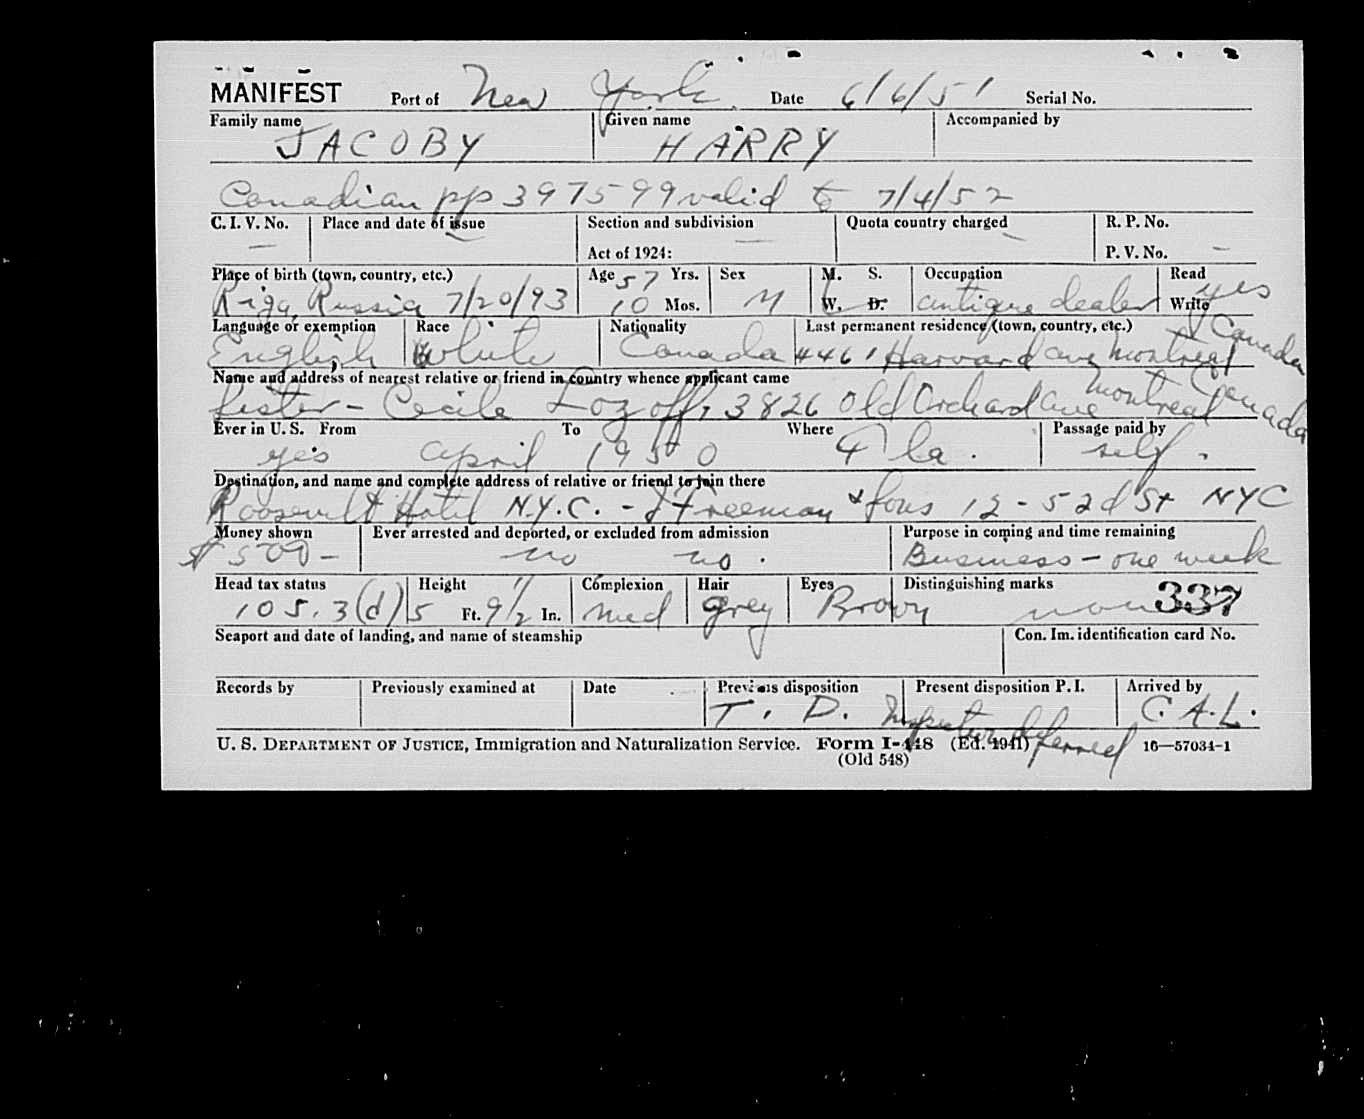 MANIFEST Port of New York. Date 6/6/51 Serial No.
Family name JACOBY Given name HARRY Accompanied by
Canadian pp 397599 valid to 7/4/52
C. I. V. No. — Place and date of issue — Section and subdivision — Quota country charged — R. P. No.
Act of 1924: P. V. No. —
Place of birth (town, country, etc.) Age 57 Yrs. Sex M. S. Occupation Read yes
Riga, Russia 7/20/93 10 Mos. M W. D. antique dealer Write
Language or exemption Race Nationality Last permanent residence (town, country, etc.)
English White Canada 4461 Harvard ave Montreal Canada
Name and address of nearest relative or friend in country whence applicant came
Sister – Cecile Lozoff, 3826 Old Orchard ave Montreal Canada
Ever in U. S. From To Where Passage paid by
yes April 1950 Fla. self.
Destination, and name and complete address of relative or friend to join there
Roosevelt Hotel N.Y.C. – J Freeman & Sons 12 - 52d St NYC
Money shown Ever arrested and deported, or excluded from admission Purpose in coming and time remaining
$500 – no no. Business – one week
Head tax status Height Complexion Hair Eyes Distinguishing marks
105.3(d) 5 Ft. 9 1/2 In. med grey Brown none 337
Seaport and date of landing, and name of steamship Con. Im. identification card No.
Records by Previously examined at Date Previous disposition Present disposition P. I. Arrived by
T. D. Inspection deferred C. A. L.
U. S. DEPARTMENT OF JUSTICE, Immigration and Naturalization Service. Form I-448 (Ed. 1941) 16—57034-1
(Old 548)